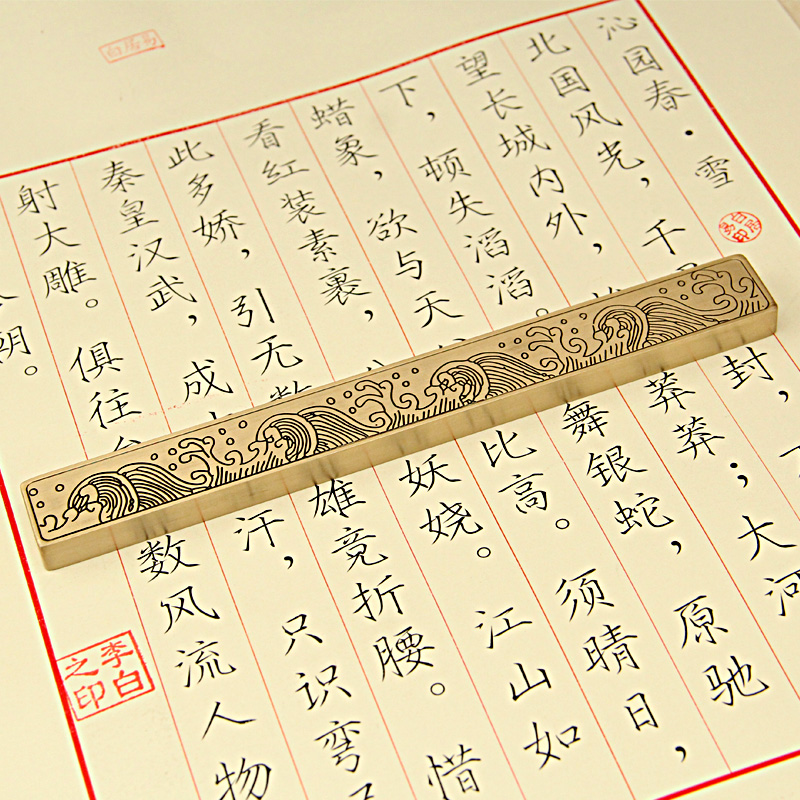 白居易
沁园春·雪
白居易印
北国风光，千 封，
望长城内外， 莽莽；大河
下，顿失滔滔。 舞银蛇，原驰
蜡象，欲与天 比高。须晴日，
看红装素裹， 妖娆。江山如
此多娇，引无数 雄竞折腰。惜
秦皇汉武，成 汗，只识弯
射大雕。俱往 数风流人物
朝。
李白之印